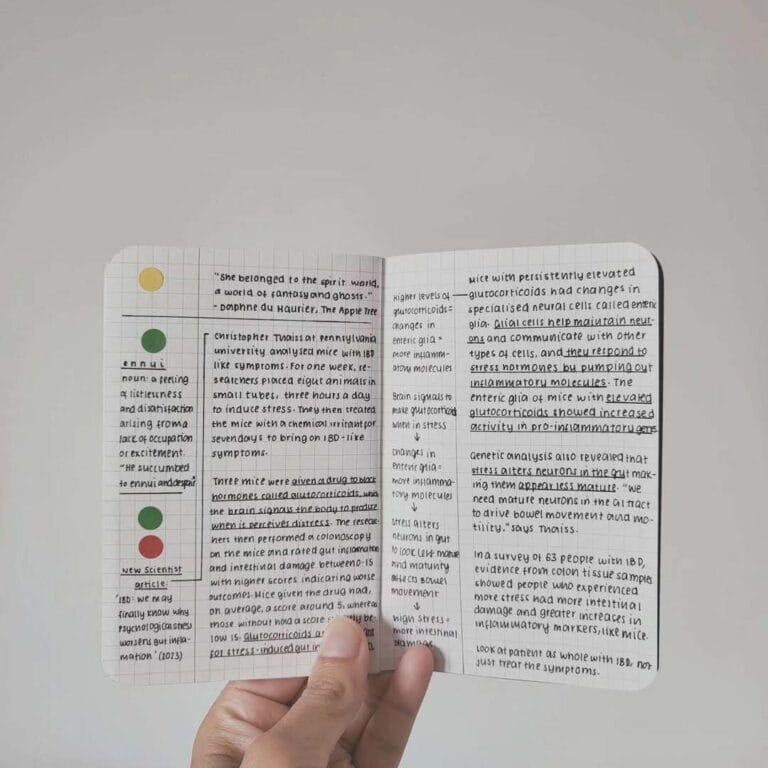 "She belonged to the spirit world,
a world of fantasy and ghosts."
- Daphne du Haurier, The Apple Tree
ennui
noun: a feeling
of listlessness
and disatisfaction
arising from a
lack of occupation
or excitement.
"He succumbed
to ennui and despair"
New Scientist
article:
'IBD: we may
finally know why
psychological stress
worsens gut infla-
mation' (2023)
Christopher Thaiss at Pennsylvania
university analysed mice with IBD
like symptoms. For one week, re-
searchers placed eigut animals in
small tubes, three hours a day
to induce stress. They then treated
the mice with a chemical irritant for
seven days to bring on IBD-like
symptoms.
Three mice were given a drug to block
hormones called glutocorticoids, which
the brain signals the body to produce
when it perceives distress. The resear-
chers then performed a colonoscopy
on the mice and rated gut inflammation
and intestinal damage between 0-15
with higher scores indicating worse
outcomes. Mice given the drug had,
on average, a score around 5, whereas
those without had a score be-
low 15. glutocorticoids
for stress-induced gut
Higher levels of
glutocorticoids =
changes in
enteric glia =
more inflamm-
atory molecules
Brain signals to
make glutocorticoid
when in stress
↓
changes in
enteric glia =
more inflamma-
tory molecules
↓
stress alters
neurons in gut
to look less mature
and maturity
affects bowel
movement
↓
High stress =
more intestinal
damage
Mice with persistently elevated
glutocorticoids had changes in
specialised neural cells called enteric
glia. Glial cells help maintain neur-
ons and communicate with other
types of cells, and they respond to
stress hormones by pumping out
inflammatory molecules. The
enteric glia of mice with elevated
glutocorticoids showed increased
activity in pro-inflammatory genes
Genetic analysis also revealed that
stress alters neurons in the gut mak-
ing them appear less mature. "We
need mature neurons in the GI tract
to drive bowel movement and mo-
tility," says Thaiss.
In a survey of 63 people with IBD,
evidence from colon tissue samples
showed people who experienced
more stress had more intestinal
damage and greater increases in
inflammatory markers, like mice.
Look at patient as whole with IBD, not
just treat the symptoms.